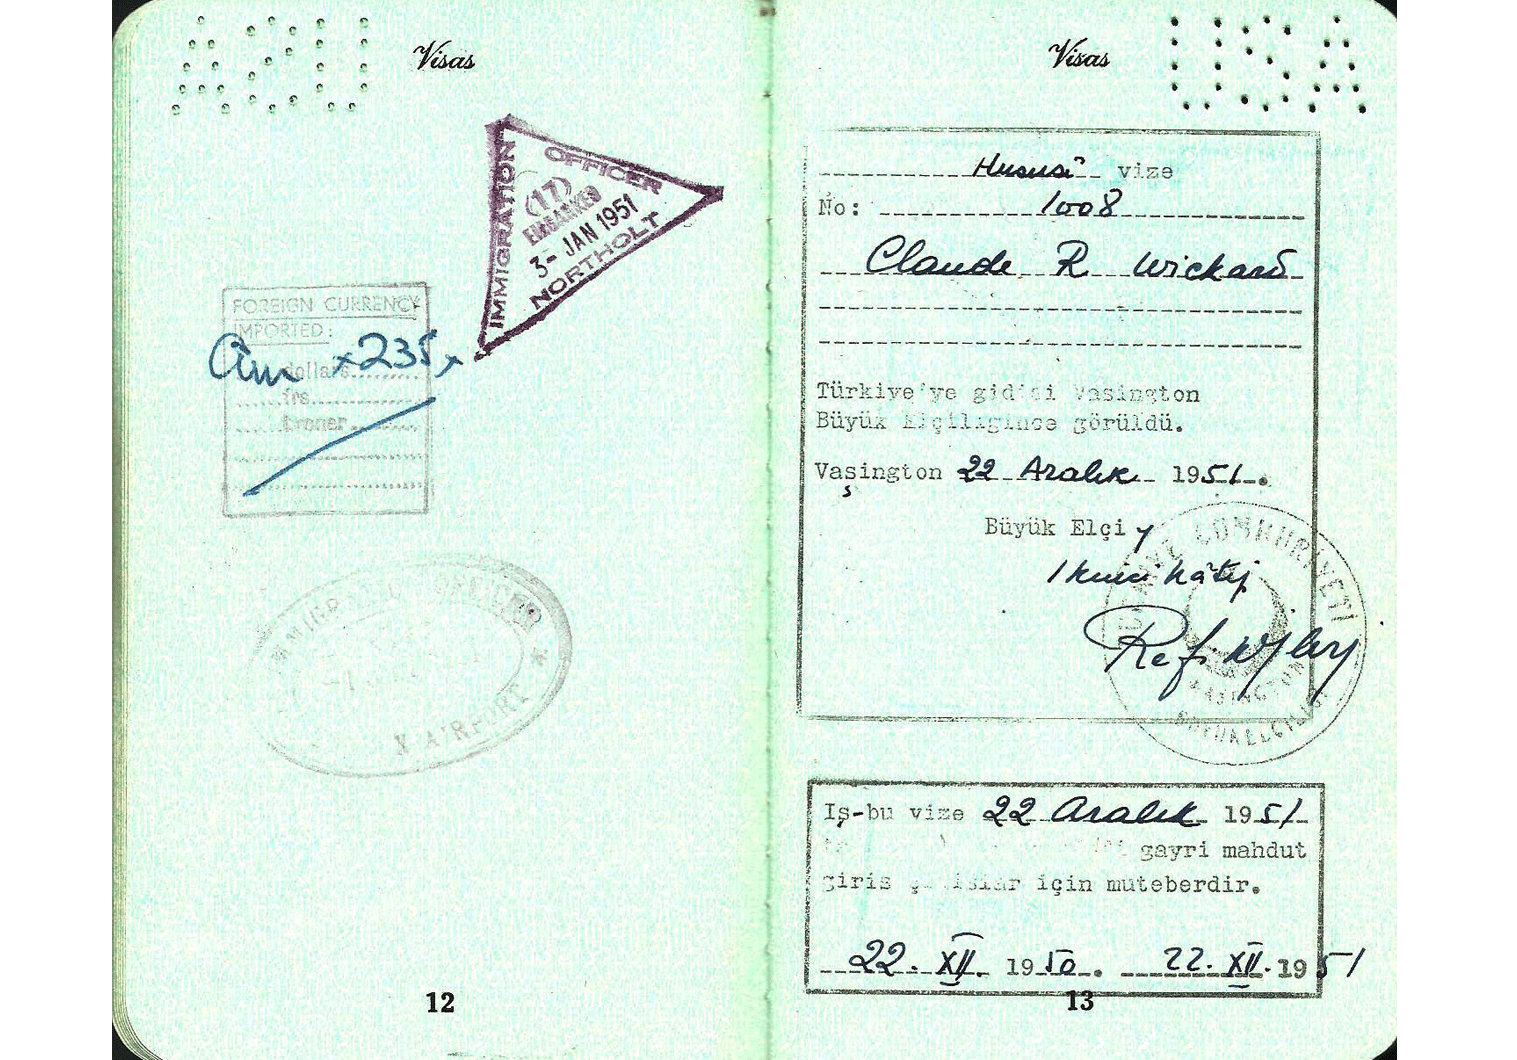 Visas
IMMIGRATION OFFICER
(17)
EMBARKED
3- JAN 1951
NORTHOLT
FOREIGN CURRENCY
IMPORTED:
Am x235x
dollars
frs
kroner
AIRPORT
12
Visas
USA
Hususî vize
No: 1008
Claude R Wickard
Türkiye'ye gidişi Vasington
Büyük Elçiliğince görüldü.
Vaşington 22 Aralık 1951.
Büyük Elçi y
Ikinci kâtip
TÜRKİYE CUMHURİYETİ
VAŞİNGTON
BÜYÜKELÇİLİĞİ
Iş-bu vize 22 Aralık 1951
gayri mahdut
giris için muteberdir.
22. XII. 1950. 22. XII. 1951
13